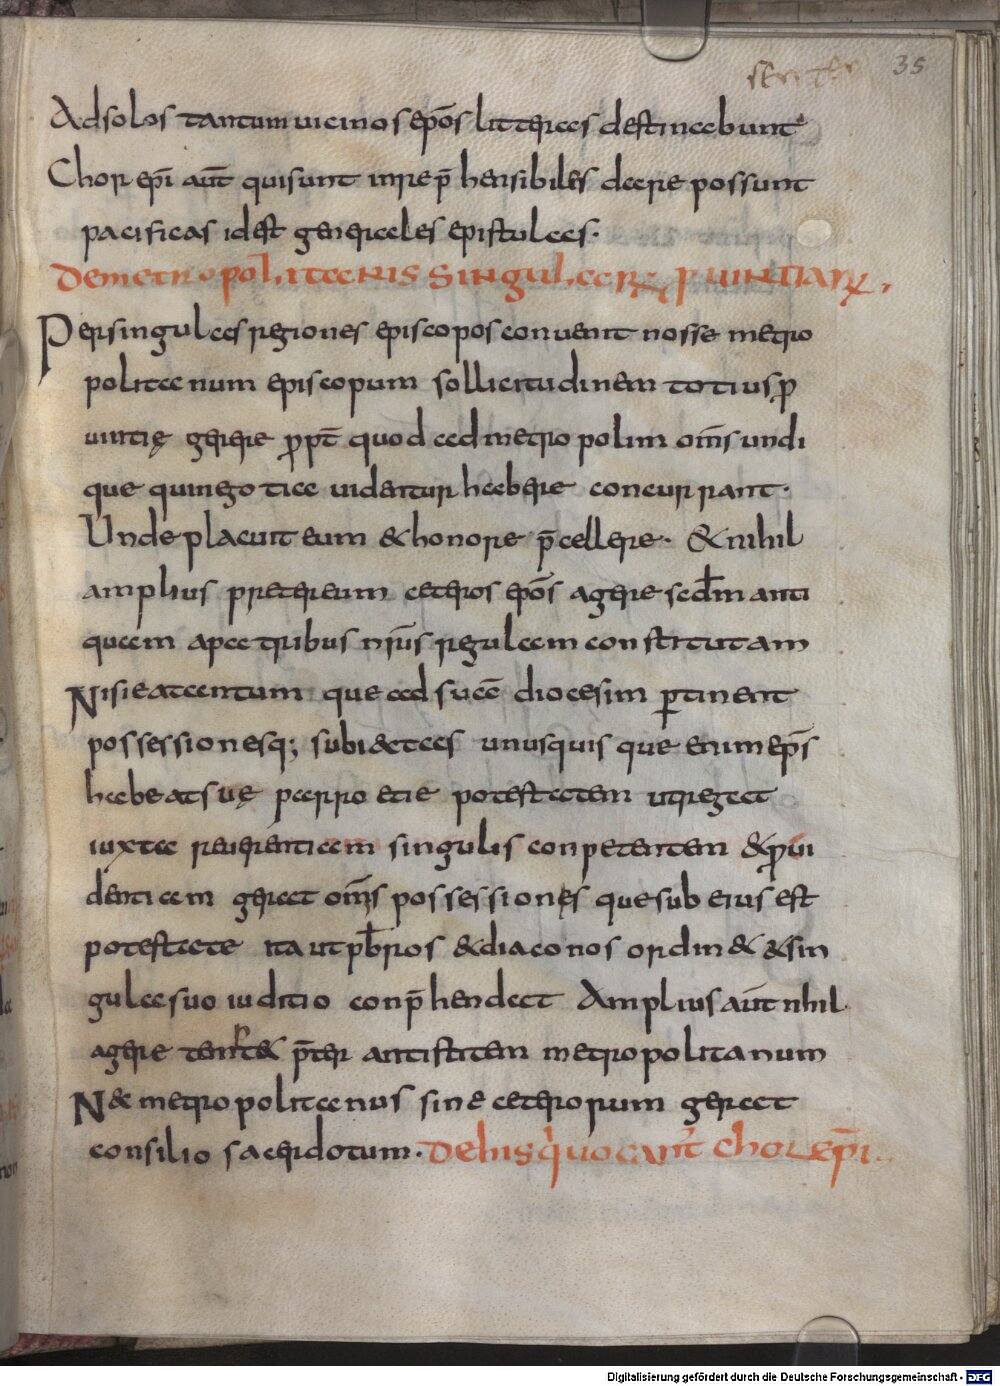 35
Adsolos tantum uicinos ep̄os litteras destinabunt
Chorep̄i aut̄ qui sunt inrep̄hensibiles dare possunt
pacificas id est generales epistulas.
De metropolitanis singularꝝ ꝓuintiarꝝ.
Per singulas regiones episcopos conuenit nosse metro
politanum episcopum sollicitudinem totius ꝓ
uintię gerere ꝓpt̄ quod ad metropolim om̄s undi
que qui negotia uidentur habere concurrant.
Unde placuit eum & honore p̄cellere. & nihil
amplius preter eum ceteros ep̄os agere sed̄m anti
quam a patribus nr̄is regulam constitutam
Nisi ea tantum que ad suā diocesim ꝑtinent
possessionesq; subiectas unusquisque enim ep̄s
habeat suę parrocie potestatem ut regat
iuxta reuerentiam singulis conpetentem & ꝓui
dentiam gerat om̄s possessiones que sub eius est
potestate ita ut pb̄ros & diaconos ordin& & sin
gula suo iuditio conp̄hendat Amplius aut̄ nihil
agere temt& p̄ter antistitem metropolitanum
N& metropolitanus sine ceterorum gerat
consilio sacerdotum. De his qui uocant̄ chorep̄i.
Digitalisierung gefördert durch die Deutsche Forschungsgemeinschaft - DFG